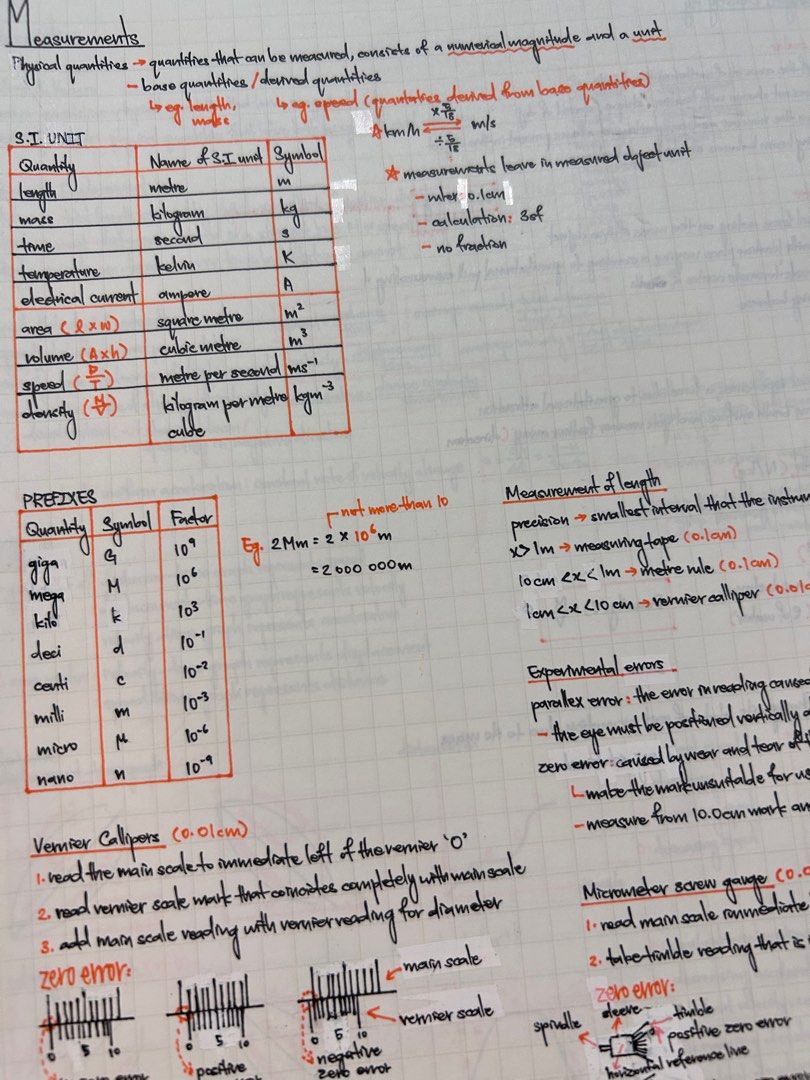 Measurements
Physical quantities → quantities that can be measured, consists of a numerical magnitude and a unit
- base quantities / derived quantities
↳ eg. length, mass
↳ eg. speed (quantities derived from base quantities)
☆ km/h ×5/18 ÷5/18 m/s
☆ measurements leave in measured object unit
- 0.1cm
- calculation: 3sf
- no fraction
S.I. UNIT
Quantity Name of S.I unit Symbol
length metre m
mass kilogram kg
time second s
temperature kelvin K
electrical current ampere A
area (l x w) square metre m²
volume (A x h) cubic metre m³
speed (D/T) metre per second ms⁻¹
density (M/V) kilogram per metre cube kgm⁻³
PREFIXES
Quantity Symbol Factor
giga G 10⁹
mega M 10⁶
kilo k 10³
deci d 10⁻¹
centi c 10⁻²
milli m 10⁻³
micro μ 10⁻⁶
nano n 10⁻⁹
not more than 10
Eg. 2Mm = 2 × 10⁶m
= 2 000 000m
Measurement of length
precision → smallest interval that the instrum
x > 1m → measuring tape (0.1cm)
10cm < x < 1m → metre rule (0.1cm)
1cm < x < 10cm → vernier calliper (0.01c
Experimental errors
parallex error: the error in reading caused
- the eye must be positioned vertically
zero error: caused by wear and tear of
↳ make the mark unsuitable for us
- measure from 10.0cm mark an
Vernier Callipers (0.01cm)
1. read the main scale to immediate left of the vernier '0'
2. read vernier scale mark that coincides completely with main scale
3. add main scale reading with vernier reading for diameter
zero error:
main scale
vernier scale
0 5 10
0 5 10
0 5 10
positive
negative
zero error
Micrometer screw gauge (0.0
1. read main scale immediate
2. take timble reading that is
zero error:
sleeve
timble
spindle
positive zero error
horizontal reference line